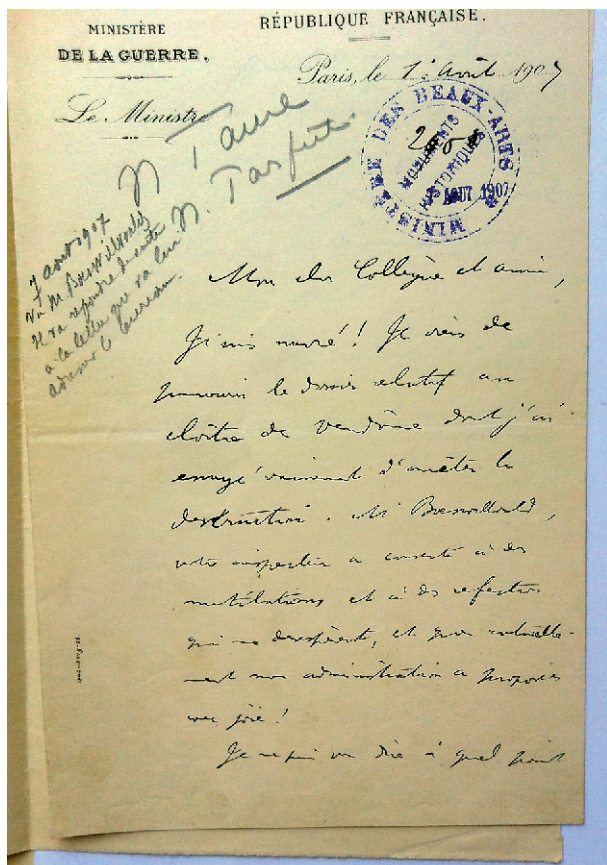 MINISTÈRE
DE LA GUERRE.
RÉPUBLIQUE FRANÇAISE.
Paris, le 1er Août 1907
Le Ministre
MINISTÈRE DES BEAUX-ARTS
MONUMENTS
HISTORIQUES
AOUT 1907
7 aout 1907
Vu M. Boeswillwald
Il va repondre de suite
a la lettre que va lui
adresser le bureau.
Mon cher Collègue et ami,
Je suis navré! Je viens de
parcourir le dossier relatif au
cloître de Vendôme dont j'ai
essayé vainement d'arrêter la
destruction. M. Boeswillwald,
votre inspecteur a consenti à des
mutilations et à des refections
qui me desespèrent, et que naturelle-
ment mon administration a proposées
avec joie!
Je ne puis vous dire à quel point